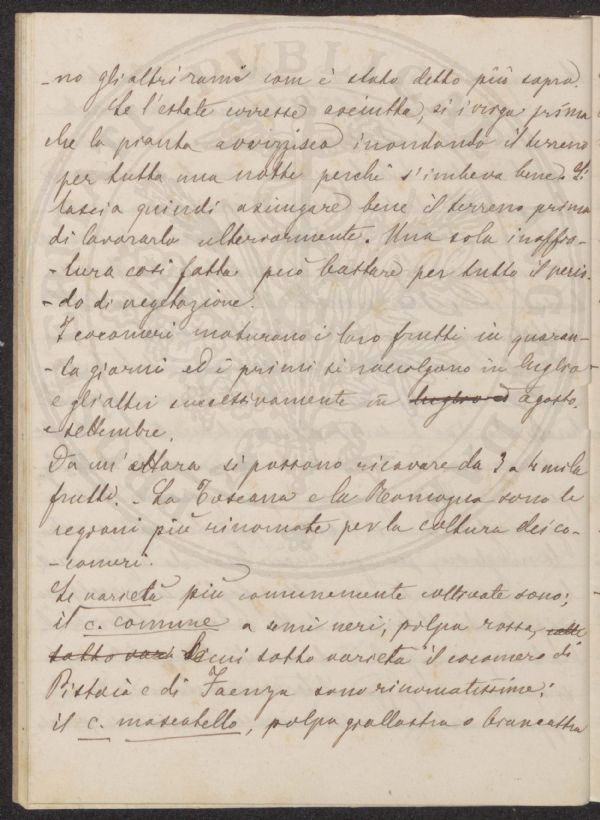 -no gli altri rami com'è stato detto più sopra.
Se l'estate corresse asciutta, si irriga prima
che la pianta avvizzisca inondando il terreno
per tutta una notte perchè s'imbeva bene. Si
lascia quindi asciugare bene il terreno prima
di lavorarlo ulteriormente. Una sola inaffia-
-tura così fatta può bastare per tutto il perio-
-do di vegetazione.
I cocomeri maturano i loro frutti in quaran-
-ta giorni ed i primi si raccolgono in luglio
e gli altri successivamente in luglio ed agosto.
e settembre.
Da un'ettara si possono ricavare da 3 a 4 mila
frutti. - La Toscana e la Romagna sono le
regioni più rinomate per la coltura dei co-
-comeri.
Le varietà più comunemente coltivate sono:
il c. comune a semi neri, polpa rossa,
sotto vari. le cui sotto varietà il cocomero di
Pistoia e di Faenza sono rinomatissime;
il c. moscatello, polpa giallastra o biancastra